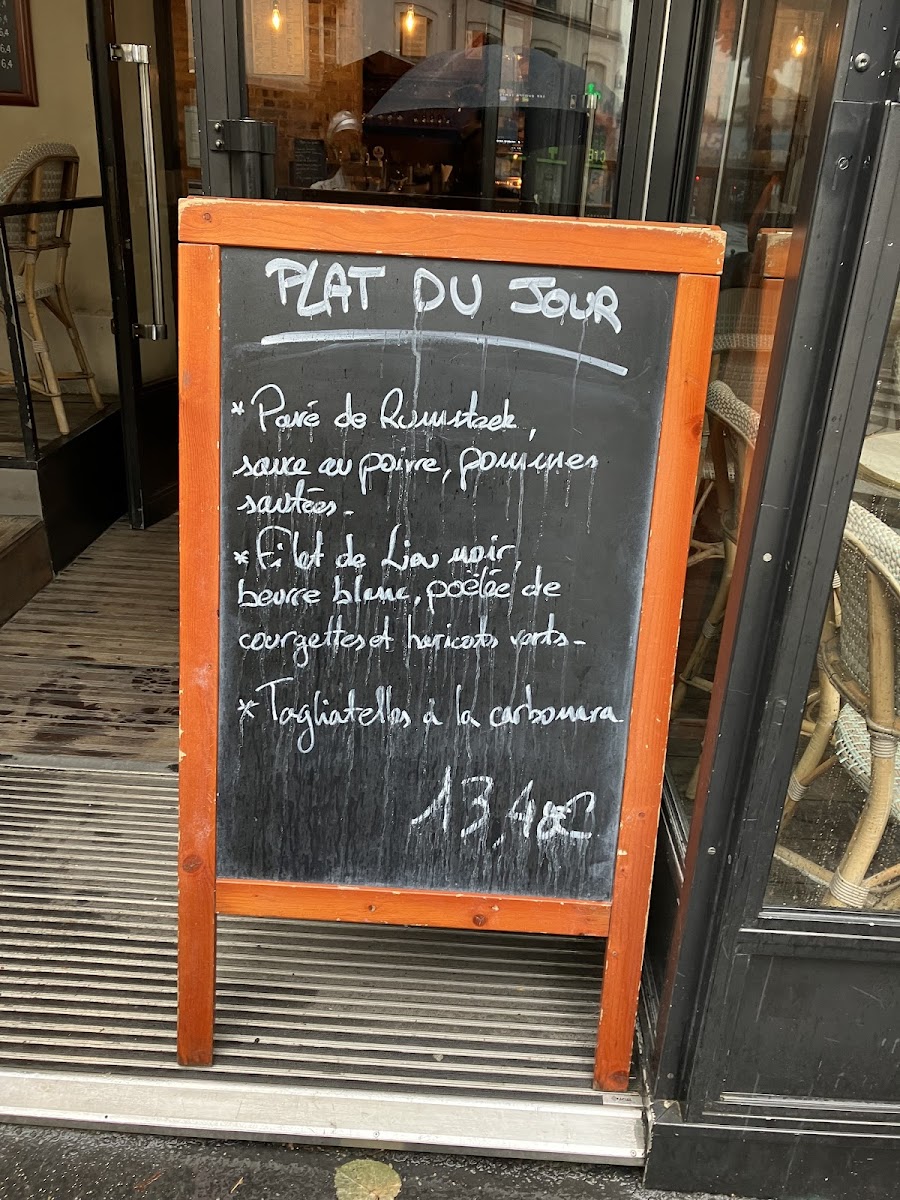 PLAT DU JOUR
* Pavé de Rumsteck,
sauce au poivre, pommes
sautées.
* Filet de Lieu noir,
beurre blanc, poêlée de
courgettes et haricots verts.
* Tagliatelles a la carbonara
13,40€